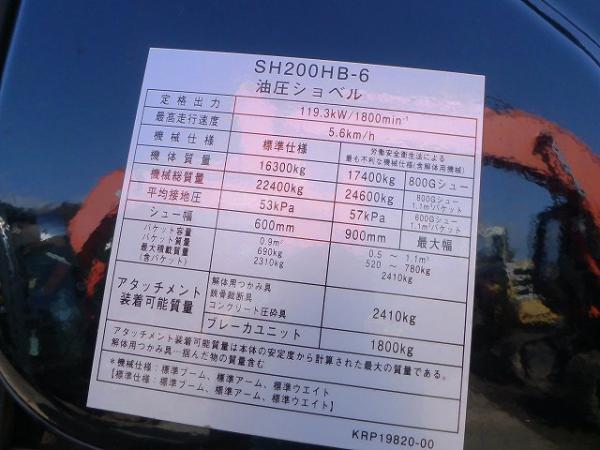 SH200HB-6
油圧ショベル
定格出力 119.3kW/1800min⁻¹
最高走行速度 5.6km/h
機械仕様 標準仕様 労働安全衛生法による
最も不利な機械仕様(含解体用機械)
機体質量 16300kg 17400kg 800Gシュー
機械総質量 22400kg 24600kg 800Gシュー
1.1m³バケット
平均接地圧 53kPa 57kPa 600Gシュー
1.1m³バケット
シュー幅 600mm 900mm 最大幅
バケット容量 0.9m³ 0.5 ～ 1.1m³
バケット質量 690kg 520 ～ 780kg
最大積載質量 2310kg 2410kg
(含バケット)
アタッチメント
装着可能質量
解体用つかみ具
鉄骨裁断具
コンクリート圧砕具
2410kg
ブレーカユニット 1800kg
アタッチメント装着可能質量は本体の安定度から計算された最大の質量である。
解体用つかみ具…掴んだ物の質量含む
*機械仕様：標準ブーム、標準アーム、標準ウエイト
【標準仕様：標準ブーム、標準アーム、標準ウエイト】
KRP19820-00